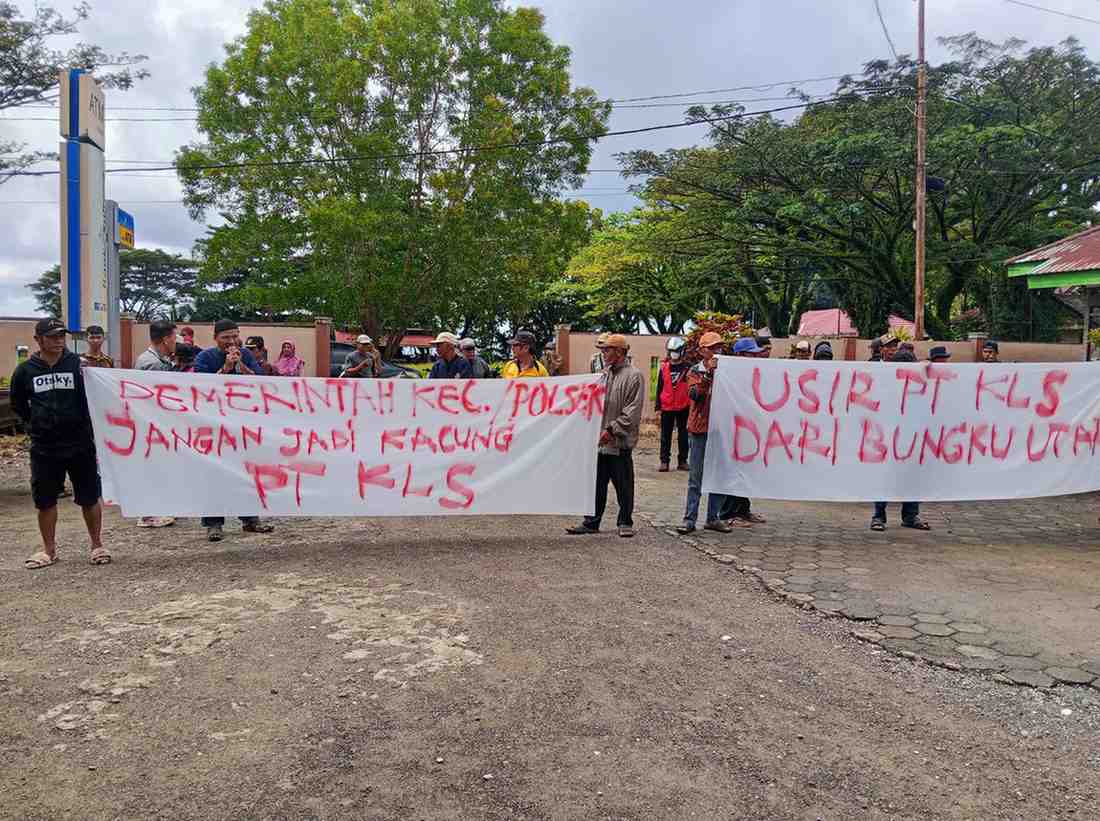 ATM
Otsky.
PEMERINTAH KEC./POLSEK
JANGAN JADI KACUNG
PT KLS
USIR PT KLS
DARI BUNGKU UTAR